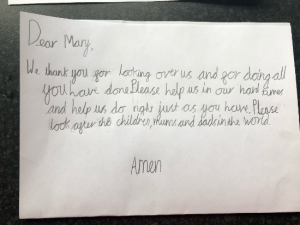 Dear Mary,
We thank you for looking over us and for doing all
you have done. Please help us in our hard times
and help us do right just as you have. Please
look after the children, mums and dads in the world.
Amen